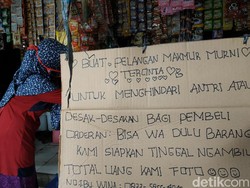 BUAT: PELANGAN MAKMUR MURNI
TERCINTA
UNTUK MENGHINDARI ANTRI ATAU
DESAK-DESAKAN BAGI PEMBELI
ORDERAN: BISA WA DULU BARANG
KAMI SIAPKAN TINGGAL NGAMBIL
TOTAL UANG KAMI FOTO
detikcom